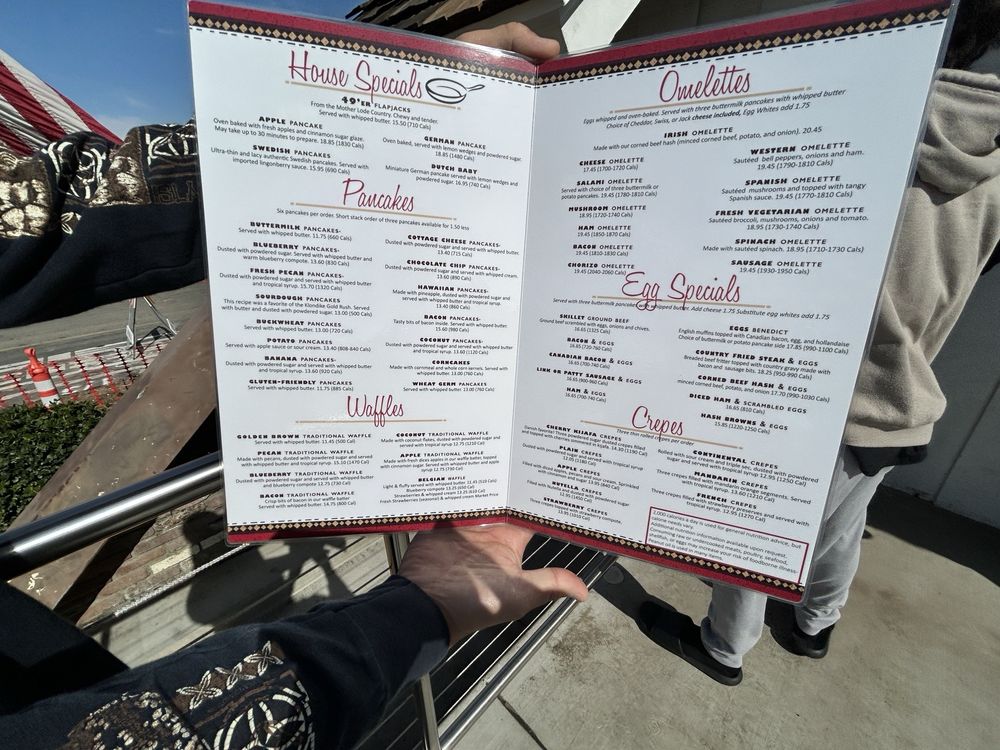 House Specials
49'ER FLAPJACKS
From the Mother Lode Country. Chewy and tender.
Served with whipped butter. 15.50 (710 Cals)
APPLE PANCAKE
Oven baked with fresh apples and cinnamon sugar glaze.
May take up to 30 minutes to prepare. 18.85 (1830 Cals)
GERMAN PANCAKE
Oven baked, served with lemon wedges and powdered sugar.
18.85 (1480 Cals)
SWEDISH PANCAKES
Ultra-thin and lacy authentic Swedish pancakes. Served with
imported lingonberry sauce. 15.95 (690 Cals)
DUTCH BABY
Miniature German pancake served with lemon wedges and
powdered sugar. 16.95 (740 Cals)
Pancakes
Six pancakes per order. Short stack order of three pancakes available for 1.50 less
BUTTERMILK PANCAKES-
Served with whipped butter. 11.75 (660 Cals)
BLUEBERRY PANCAKES-
Dusted with powdered sugar. Served with whipped butter and
warm blueberry compote. 13.60 (830 Cals)
FRESH PECAN PANCAKES-
Dusted with powdered sugar and served with whipped butter
and tropical syrup. 15.70 (1320 Cals)
SOURDOUGH PANCAKES
This recipe was a favorite of the Klondike Gold Rush. Served
with butter and dusted with powdered sugar. 13.00 (500 Cals)
BUCKWHEAT PANCAKES
Served with whipped butter. 13.00 (720 Cals)
POTATO PANCAKES
Served with apple sauce or sour cream. 13.40 (808-840 Cals)
BANANA PANCAKES-
Dusted with powdered sugar and served with whipped butter
and tropical syrup. 13.60 (920 Cals)
GLUTEN-FRIENDLY PANCAKES
Served with whipped butter. 11.75 (885 Cals)
COTTAGE CHEESE PANCAKES-
Dusted with powdered sugar and served with whipped butter.
13.40 (715 Cals)
CHOCOLATE CHIP PANCAKES-
Dusted with powdered sugar and served with whipped cream.
13.60 (890 Cals)
HAWAIIAN PANCAKES-
Made with pineapple, dusted with powdered sugar and
served with whipped butter and tropical syrup.
13.40 (860 Cals)
BACON PANCAKES-
Tasty bits of bacon inside. Served with whipped butter.
15.60 (980 Cals)
COCONUT PANCAKES-
Dusted with powdered sugar and served with whipped butter
and tropical syrup. 13.60 (1120 Cals)
CORNCAKES
Made with cornmeal and whole corn kernels. Served with
whipped butter. 13.00 (760 Cals)
WHEAT GERM PANCAKES
Served with whipped butter. 13.00 (760 Cals)
Waffles
GOLDEN BROWN TRADITIONAL WAFFLE
Served with whipped butter. 11.45 (500 Cal)
PECAN TRADITIONAL WAFFLE
Made with pecans, dusted with powdered sugar and served
with whipped butter and tropical syrup. 15.10 (1470 Cals)
BLUEBERRY TRADITIONAL WAFFLE
Dusted with powdered sugar and served with whipped butter
and blueberry compote 12.75 (730 Cal)
BACON TRADITIONAL WAFFLE
Crisp bits of bacon in our waffle batter.
Served with whipped butter. 14.75 (800 Cals)
COCONUT TRADITIONAL WAFFLE
Made with coconut flakes, dusted with powdered sugar and
served with tropical syrup 12.75 (1210 Cal)
APPLE TRADITIONAL WAFFLE
Made with fresh does apples in our waffle batter, topped
with cinnamon sugar. Served with whipped butter and apple
syrup 12.75 (730 Cal)
BELGIAN WAFFLE
Light & fluffy served with whipped butter. 11.45 (519 Cals)
Blueberry compote 13.25 (650 Cal)
Strawberries & whipped cream 13.25 (610 Cal)
Fresh Strawberries (seasonal) & whipped cream Market Price
Omelettes
Eggs whipped and oven-baked. Served with three buttermilk pancakes with whipped butter
Choice of Cheddar, Swiss, or Jack cheese included, Egg Whites add 1.75
IRISH OMELETTE
Made with our corned beef hash (minced corned beef, potato, and onion). 20.45
CHEESE OMELETTE
17.45 (1700-1720 Cals)
SALAMI OMELETTE
Served with choice of three buttermilk or
potato pancakes. 19.45 (1780-1810 Cals)
MUSHROOM OMELETTE
18.95 (1720-1740 Cals)
HAM OMELETTE
19.45 (1850-1870 Cals)
BACON OMELETTE
19.45 (1810-1830 Cals)
CHORIZO OMELETTE
19.45 (2040-2060 Cals)
WESTERN OMELETTE
Sautéed bell peppers, onions and ham.
19.45 (1790-1810 Cals)
SPANISH OMELETTE
Sautéed mushrooms and topped with tangy
Spanish sauce. 19.45 (1770-1810 Cals)
FRESH VEGETARIAN OMELETTE
Sautéed broccoli, mushrooms, onions and tomato.
18.95 (1730-1740 Cals)
SPINACH OMELETTE
Made with sautéed spinach. 18.95 (1710-1730 Cals)
SAUSAGE OMELETTE
19.45 (1930-1950 Cals)
Egg Specials
Served with three buttermilk pancakes with whipped butter. Add cheese 1.75 Substitute egg whites add 1.75
SKILLET GROUND BEEF
Ground beef scrambled with eggs, onions and chives.
16.65 (1325 Cals)
BACON & EGGS
16.65 (720-760 Cals)
CANADIAN BACON & EGGS
16.65 (700-740 Cals)
LINK OR PATTY SAUSAGE & EGGS
16.65 (900-960 Cals)
HAM & EGGS
16.65 (700-740 Cals)
EGGS BENEDICT
English muffins topped with Canadian bacon, egg, and hollandaise
Choice of buttermilk or potato pancake side 17.85 (990-1100 Cals)
COUNTRY FRIED STEAK & EGGS
Breaded beef fritter topped with country gravy made with
bacon and sausage bits. 18.25 (950-990 Cals)
CORNED BEEF HASH & EGGS
minced corned beef, potato, and onion 17.70 (990-1030 Cals)
DICED HAM & SCRAMBLED EGGS
16.65 (810 Cals)
HASH BROWNS & EGGS
15.85 (1220-1250 Cals)
Crepes
Three thin rolled crepes per order
CHERRY KIJAFA CREPES
Danish favorite! Three powdered sugar dusted crepes filled
and topped with cherries simmered in kijafa. 14.30 (1190 Cals)
PLAIN CREPES
Dusted with powdered sugar and served with tropical syrup
12.05 (1180 Cal)
APPLE CREPES
Filled with diced apples, pecans and sour cream. Sprinkled
with cinnamon and sugar 13.95 (840 Cal)
NUTELLA CREPES
Filled with nutella and dusted with powdered sugar
12.95 (1450 Cal)
STRAWBERRY CREPES
Three crepes topped with strawberry compote.
CONTINENTAL CREPES
Rolled with sour cream and triple sec, dusted with powdered
sugar and served with tropical syrup 12.95 (1250 Cals)
MANDARIN CREPES
Three crepes filled with mandarin orange segments. Served
with tropical syrup. 13.60 (1210 Cals)
FRENCH CREPES
Three crepes filled with raspberry preserves and served with
tropical syrup. 12.95 (1270 Cal)
2,000 calories a day is used for general nutrition advice, but
calorie needs vary.
Additional nutrition information available upon request.
Consuming raw or undercooked meats, poultry, seafood,
shellfish, or eggs may increase your risk of foodborne illness-
Peanut oil is used in many items.